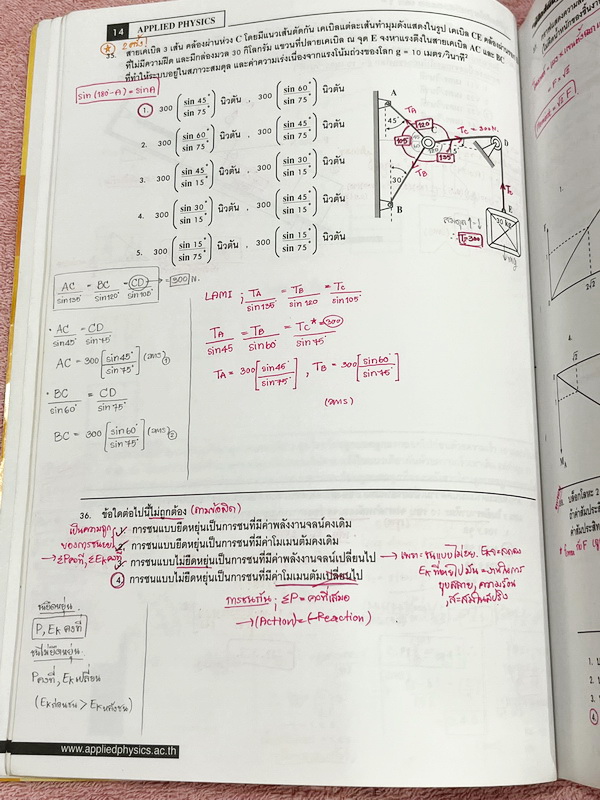 14 APPLIED PHYSICS
2 ครั้ง!
35. สายเคเบิล 3 เส้น คล้องผ่านห่วง C โดยมีแนวเส้นตัดกัน เคเบิลแต่ละเส้นทำมุมดังแสดงในรูป เคเบิล CE คล้องผ่านรอก
ที่ไม่มีความฝืด และมีกล่องมวล 30 กิโลกรัม แขวนที่ปลายเคเบิล ณ จุด E จงหาแรงดึงในสายเคเบิล AC และ BC
ที่ทำให้ระบบอยู่ในสภาวะสมดุล และค่าความเร่งเนื่องจากแรงโน้มถ่วงของโลก g = 10 เมตร/วินาที²
sin(180-A) = sinA
1. 300 (sin 45°/sin 75°) นิวตัน , 300 (sin 60°/sin 75°) นิวตัน
2. 300 (sin 60°/sin 75°) นิวตัน , 300 (sin 45°/sin 75°) นิวตัน
3. 300 (sin 45°/sin 15°) นิวตัน , 300 (sin 30°/sin 15°) นิวตัน
4. 300 (sin 30°/sin 15°) นิวตัน , 300 (sin 45°/sin 15°) นิวตัน
5. 300 (sin 15°/sin 75°) นิวตัน , 300 (sin 15°/sin 75°) นิวตัน
A
45°
TA
120
C
TC = 300N.
D
105
135
TB
30°
B
E
30 kg
T=300
mg
AC/sin135° = BC/sin120° = CD/sin105° = 300 N.
· AC/sin45° = CD/sin75°
AC = 300[sin45°/sin75°] (ตอบ) 1
· BC/sin60° = CD/sin75°
BC = 300[sin60°/sin75°] (ตอบ) 2
LAMI ; TA/sin135 = TB/sin120 = TC/sin105
TA/sin45 = TB/sin60 = TC*=300/sin75
TA = 300[sin45°/sin75°] , TB = 300[sin60°/sin75°]
(ตอบ)
36. ข้อใดต่อไปนี้ไม่ถูกต้อง (ถามข้อผิด)
1. การชนแบบยืดหยุ่นเป็นการชนที่มีค่าพลังงานจลน์คงเดิม
2. การชนแบบยืดหยุ่นเป็นการชนที่มีค่าโมเมนตัมคงเดิม
3. การชนแบบไม่ยืดหยุ่นเป็นการชนที่มีค่าพลังงานจลน์เปลี่ยนไป
4. การชนแบบไม่ยืดหยุ่นเป็นการชนที่มีค่าโมเมนตัมเปลี่ยนไป
การชนกัน ; ΣP = คงที่เสมอ
→ (Action) = (-Reaction)
ชนยืดหยุ่น
P, Ek คงที่
ชนไม่ยืดหยุ่น
P คงที่, Ek เปลี่ยน
(Ek ก่อนชน > Ek หลังชน)
www.appliedphysics.ac.th